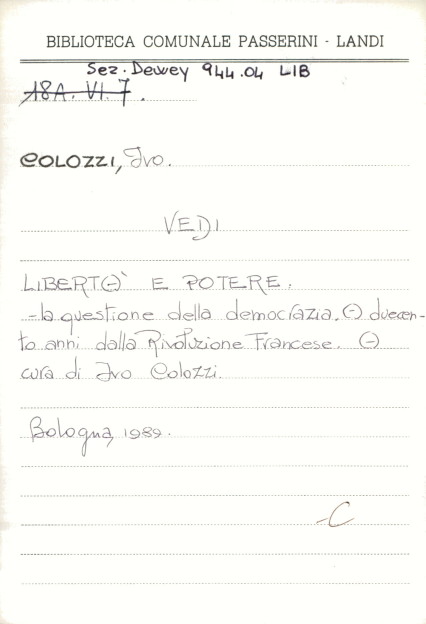 BIBLIOTECA COMUNALE PASSERINI - LANDI
Sez. Dewey 944.04 LIB
18A. VI. 7.
COLOZZI, Ivo.
VEDI
LIBERTA` E POTERE.
-la questione della democrazia. A duecen-
to anni dalla Rivoluzione Francese. A
cura di Ivo Colozzi.
Bologna, 1989.
-C